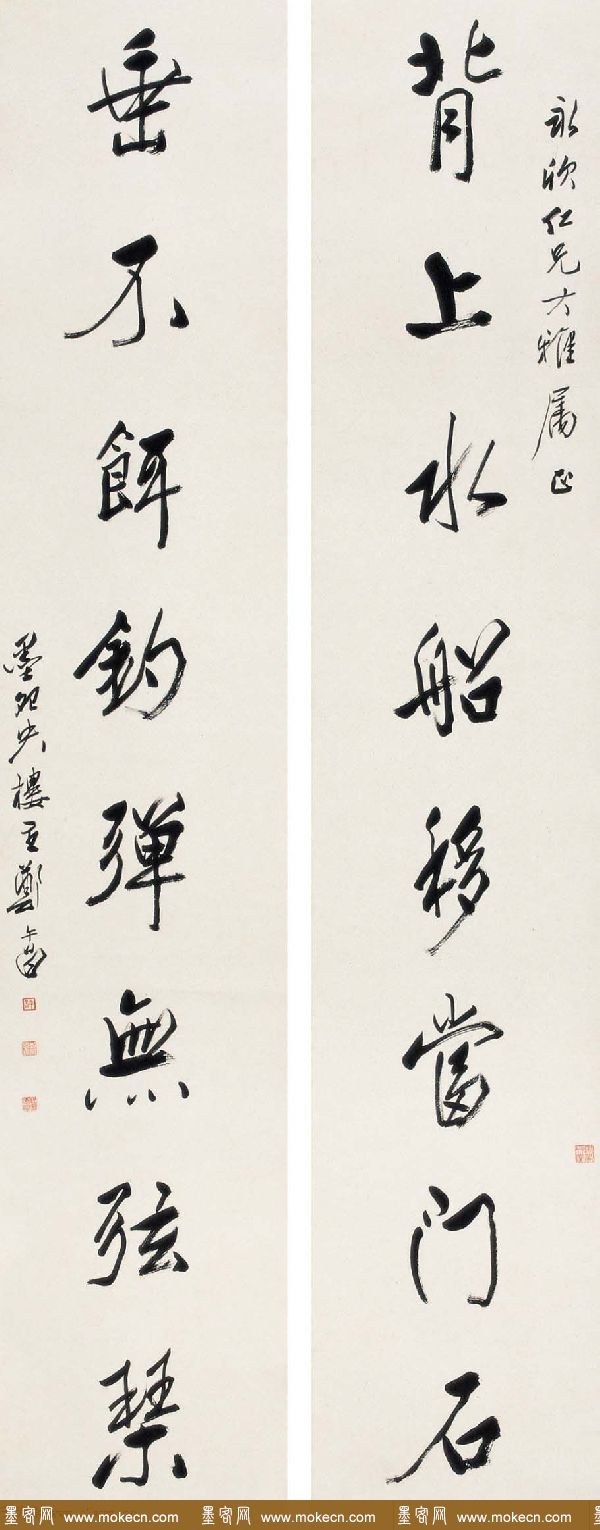 永欣仁兄大雅屬正
背上水船移當門石
垂不餌釣彈無弦琴
墨夗央樓主鄭午昌
墨客网 www.mokecn.com 墨客网 www.mokecn.com 墨客网 www.mokecn.com